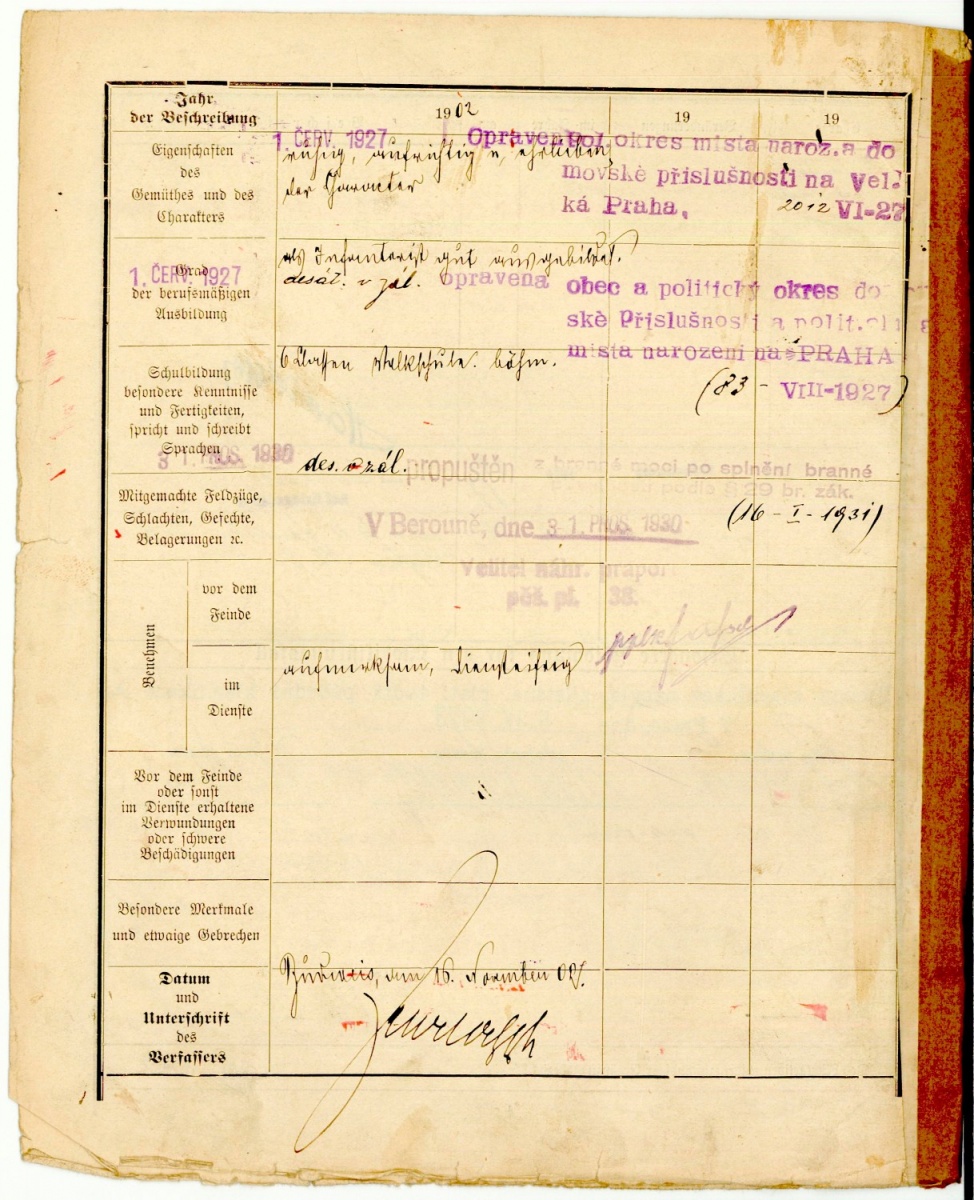 Jahr
der Beschreibung
1902
19
19
1 ČERV. 1927
Opraven pol. okres místa naroz. a do
Eigenschaften
des
Gemüthes und des
Charakters
ruhig, aufrichtig u. ehrlieben-
der Charakter
movské příslušnosti na Vel-
ká Praha.
2012 VI-27
1. ČERV. 1927
Grad
der berufsmäßigen
Ausbildung
als Infanterist gut ausgebildet.
desát. v zál.
opravena obec a politický okres do
ské Příslušnosti a polit.
místa narození na PRAHA
(83 - VIII-1927)
Schulbildung
besondere Kenntnisse
und Fertigkeiten,
spricht und schreibt
Sprachen
6 Classen Volkschule. böhm.
3 1. PROS. 1930
des. v zál.
propuštěn z branné moci po splnění branné
podle § 29 br. zák.
Mitgemachte Feldzüge,
Schlachten, Gefechte,
Belagerungen ꝛc.
V Berouně, dne 3 1. PROS. 1930
(16 - I - 1931)
Velitel náhr. praporu
pěš. pl. 38.
Benehmen
vor dem
Feinde
im
Dienste
aufmerksam, diensteifrig
Vor dem Feinde
oder sonst
im Dienste erhaltene
Verwundungen
oder schwere
Beschädigungen
Besondere Merkmale
und etwaige Gebrechen
Datum
und
Unterschrift
des
Verfassers
Budweis, am 16. November 902.